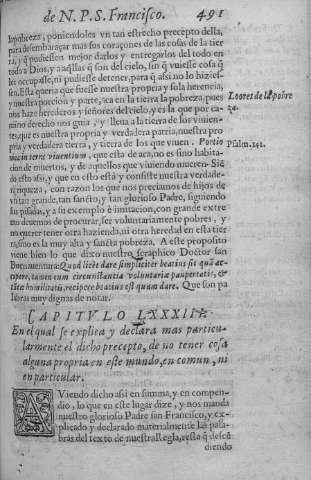 de N. P. S. Francisco. 491
la pobreza, poniendoles vn tan estrecho precepto della,
para desembaraçar mas sus coraçones de las cosas de la tier
ra, y q̃ pudiessen mejor darlos y entregarlos del todo en
todo a Dios, y a aq̃llas q̃ son del cielo, sin q̃ vuiesse cosa q̃
les occupasse, ni pudiesse detener, para q̃ assi no lo hiziessen.
Esta queria que fuesse nuestra propria y sola herencia,
y nuestra porcion y parte, aca en la tierra la pobreza, pues
nos haze herederos y señores del cielo, y es la que por ca-
mino derecho nos guia, y lleua a la tierra de los viuien-
tes, que es nuestra propria y verdadera patria, nuestra pro
pria y verdadera tierra, y tierra de los que viuen. Portio
mea in terra viuentium, que esta de aca, no es sino habita-
cion de muertos, y de aquellos que viuiendo mueren. Sié
do esto assi, y que en esto está y consiste nuestra verdade-
ra riqueza, con razon los que nos preciamos de hijos de
vn tan grande, tan sancto, y tan glorioso Padre, siguiendo
sus pisadas, y a su exemplo è imitacion, con grande extre
mo deuemos de procurar, ser voluntariamente pobres, y
no querer tener otra hazienda, ni otra heredad en esta tier
ra, sino es la muy alta y sancta pobreza. A este proposito
viene bien lo que dixo nuestro seraphico Doctor san
Buenauentura: Quod licèt dare simpliciter beatius sit quã ac-
cipere, tamen cum circunstantia voluntariæ paupertatis, &
suæ humilitatis, recipere beatius est quam dare. Que son pa
labras muy dignas de notar.
Loores de la pobre
za.
Psalm. 141.
CAPITVLO LXXXII.
En el qual se explica y declara mas particu-
larmente el dicho precepto, de no tener cosa
alguna propria en este mundo, en comun, ni
en particular.
AViendo dicho assi en summa, y en compen-
dio, lo que en este lugar dize, y nos manda
nuestro glorioso Padre san Francisco, y ex-
plicado y declarado materialmente las pala-
bras del texto de nuestra Regla, resta q̃ descẽ
diendo